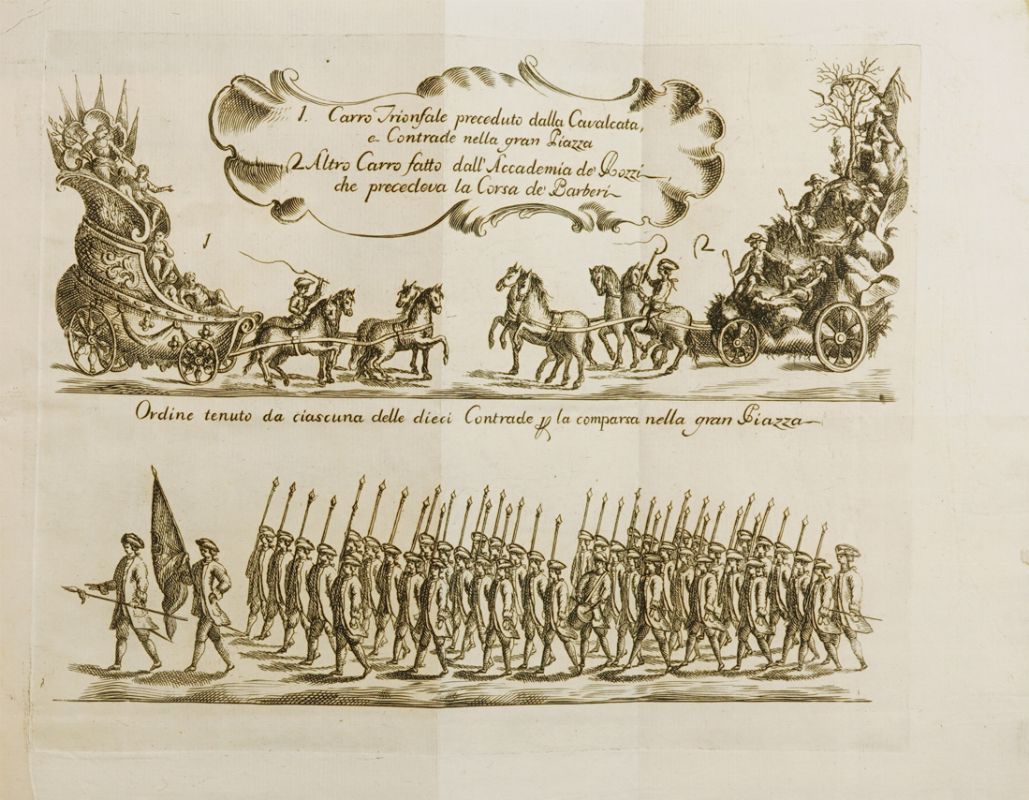 1. Carro Trionfale preceduto dalla Cavalcata,
e Contrade nella gran Piazza
2 Altro Carro fatto dall'Accademia de Rozzi
che precedeva la Corsa de Barberi
1
2
Ordine tenuto da ciascuna delle dieci Contrade p la comparsa nella gran Piazza